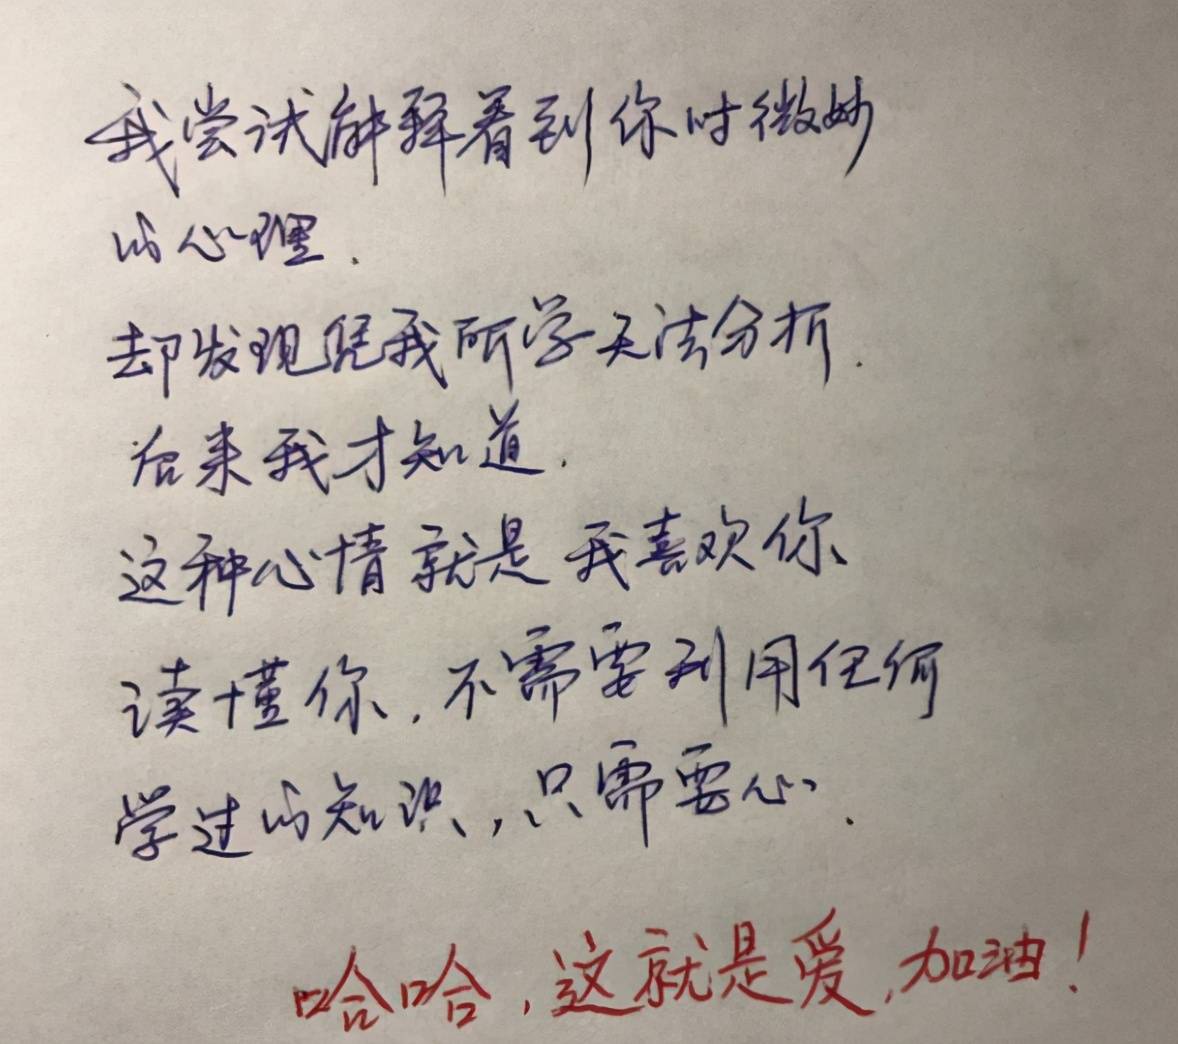 我尝试解释看到你时微妙
的心理.
却发现凭我所学无法分析.
后来我才知道.
这种心情就是我喜欢你
读懂你,不需要利用任何
学过的知识,只需要心.
哈哈,这就是爱,加油!